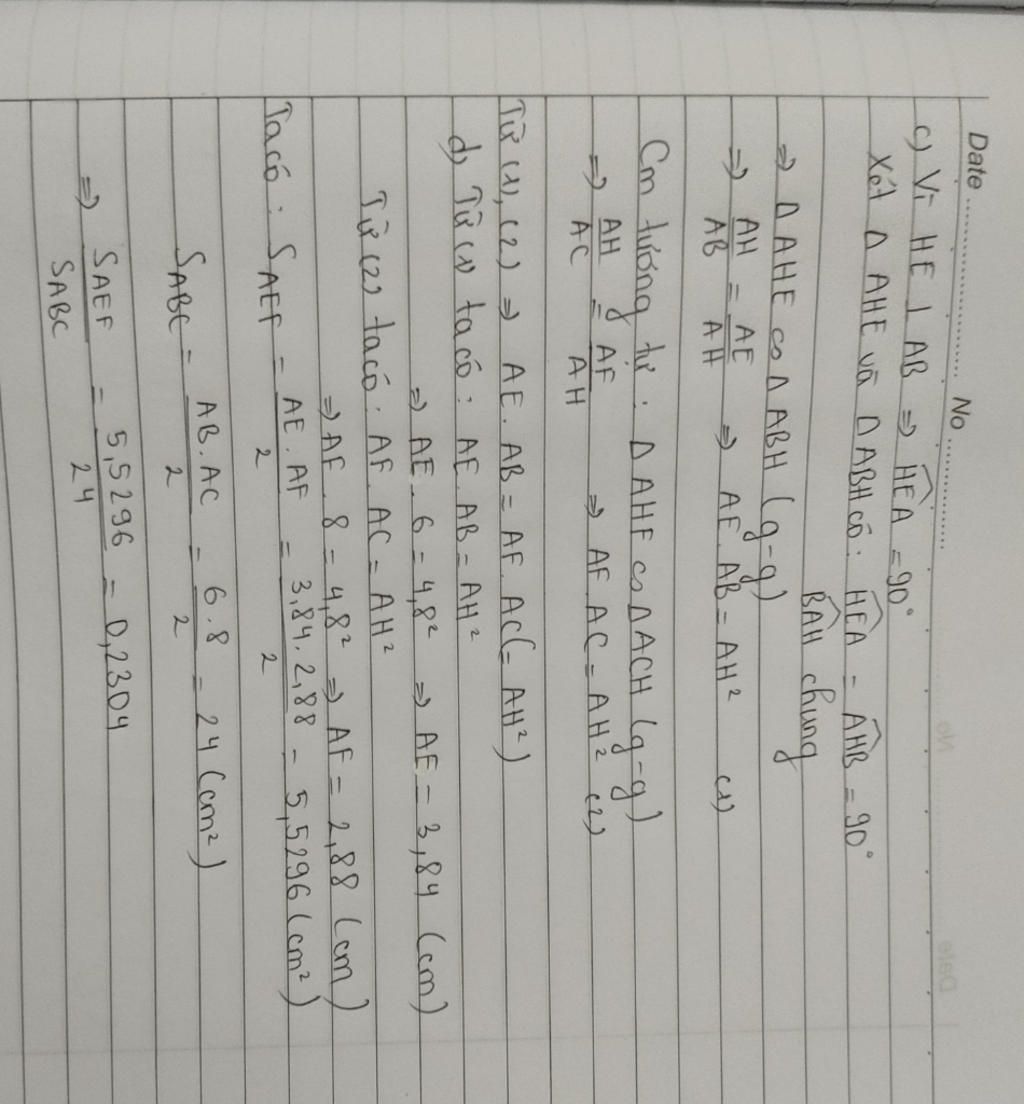 Date .................... No ....................
c) Vì HE ⊥ AB => HÊA = 90°
Xét Δ AHE và Δ ABH có: HÊA = AĤB = 90°
BÂH chung
=> Δ AHE ∽ Δ ABH (g-g)
=> AH/AB = AE/AH => AE.AB = AH² (1)
Cm tương tự: Δ AHF ∽ Δ ACH (g-g)
=> AH/AC = AF/AH => AF.AC = AH² (2)
Từ (1), (2) => AE.AB = AF.AC (= AH²)
d) Từ (1) ta có: AE.AB = AH²
=> AE.6 = 4,8² => AE = 3,84 (cm)
Từ (2) ta có: AF.AC = AH²
=> AF.8 = 4,8² => AF = 2,88 (cm)
Ta có: S_AEF = AE.AF/2 = 3,84.2,88/2 = 5,5296 (cm²)
S_ABC = AB.AC/2 = 6.8/2 = 24 (cm²)
=> S_AEF/S_ABC = 5,5296/24 = 0,2304